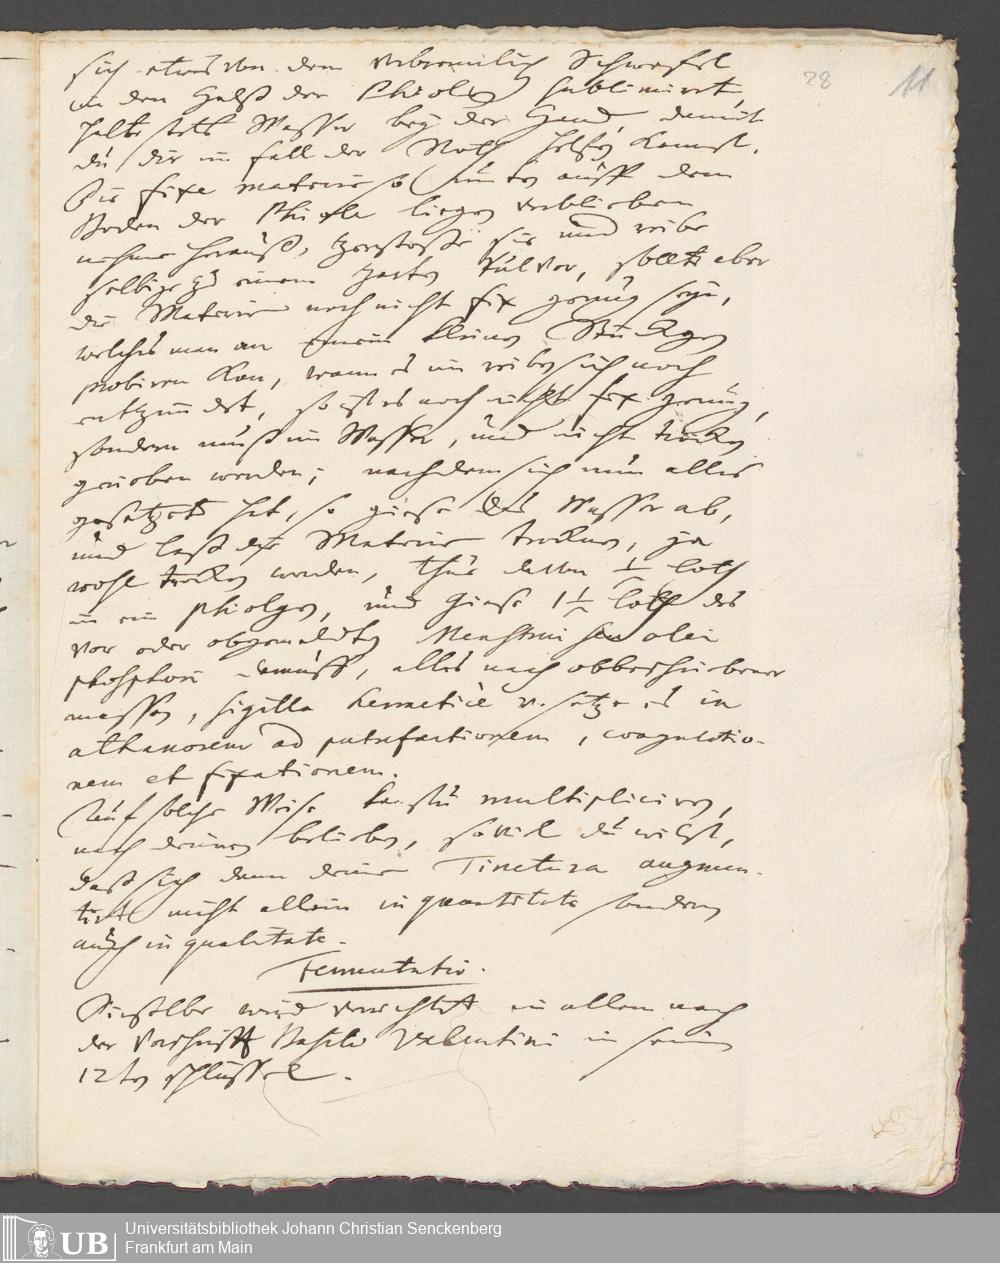 28 11
sich etwas von dem verbrenlich Schwefel
in den Halß der Phiole sublimirt,
halte stets Wasser bey der Hand, damit
du dir im fall der Noth helfen kanst.
Die fixe materie so unten auff dem
Boden der Phiole liegen verblieben
nehme herauß, zerstoße sie und reibe
selbige zu einem zarten Pulver, sollte aber
die Materie noch nicht fix genug seyn,
welches man an einem kleinen Stückgen
probiren kan, wann es im reiben sich noch
entzündet, so ist es noch nicht fix genug,
sondern muß im Wasser, und nicht trocken
gerieben werden; nachdem sich nun alles
gesetzet hat, so giese das Wasser ab,
und laß die Materie trocknen, ja
wohl trocken werden, thue davon 1/2 loth
in ein phiolgen, und giese 1 1/2 loth des
vor oder obgemeldten Menstrui seu olei
phosphori darauff, alles nach obbeschriebener
massen, sigilla hermeticè u. setze es in
athanorem ad putrefactionem, coagulatio-
nem et fixationem.
Auf solche Weise kanstu multipliciren,
nach deinem belieben, soviel du wilst,
daß sich dann deine Tinctura augmen-
tirt nicht allein in quantitate sondern
auch in qualitate.
Fermentatio.
Dieselbe wird verrichtet in allem nach
der Vorschrifft Basilii Valentini in seinen
12ten schlüssel.
UB Universitätsbibliothek Johann Christian Senckenberg
Frankfurt am Main